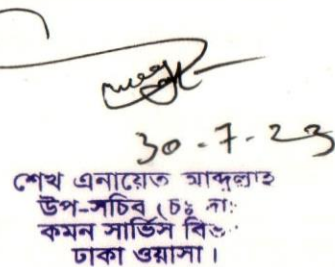 30-7-23
শেখ এনায়েত আব্দুল্লাহ
উপ-সচিব (চঃ দাঃ
কমন সার্ভিস বিঃ
ঢাকা ওয়াসা।